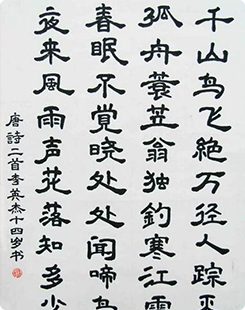 千山鸟飞絶万径人踪灭
孤舟蓑笠翁独釣寒江雪
春眠不覺晓处处闻啼鸟
夜来風雨声花落知多少
唐詩二首李英杰十四岁书